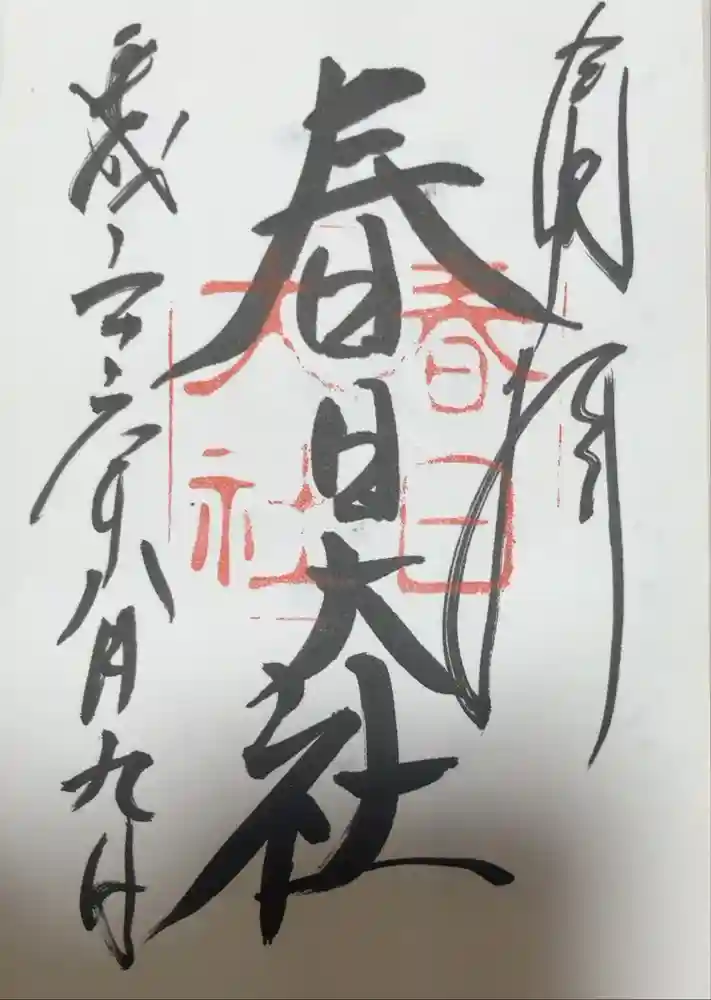 奉拝
春日大社
春日
大社
平成 年八月九日